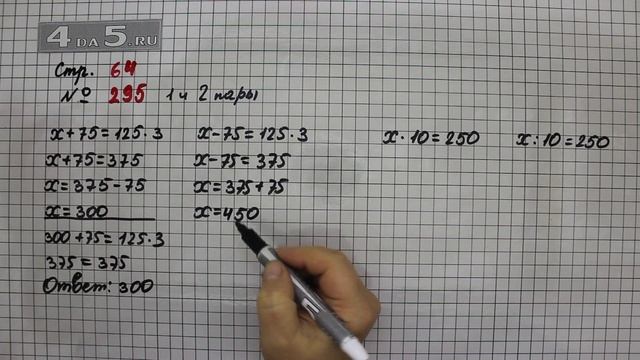 4DA5.RU
Стр. 64
№ 295 1 и 2 пары
x+75=125·3
x+75=375
x=375-75
x=300
300+75=125·3
375=375
Ответ: 300
x-75=125·3
x-75=375
x=375+75
x=450
x·10=250
x:10=250